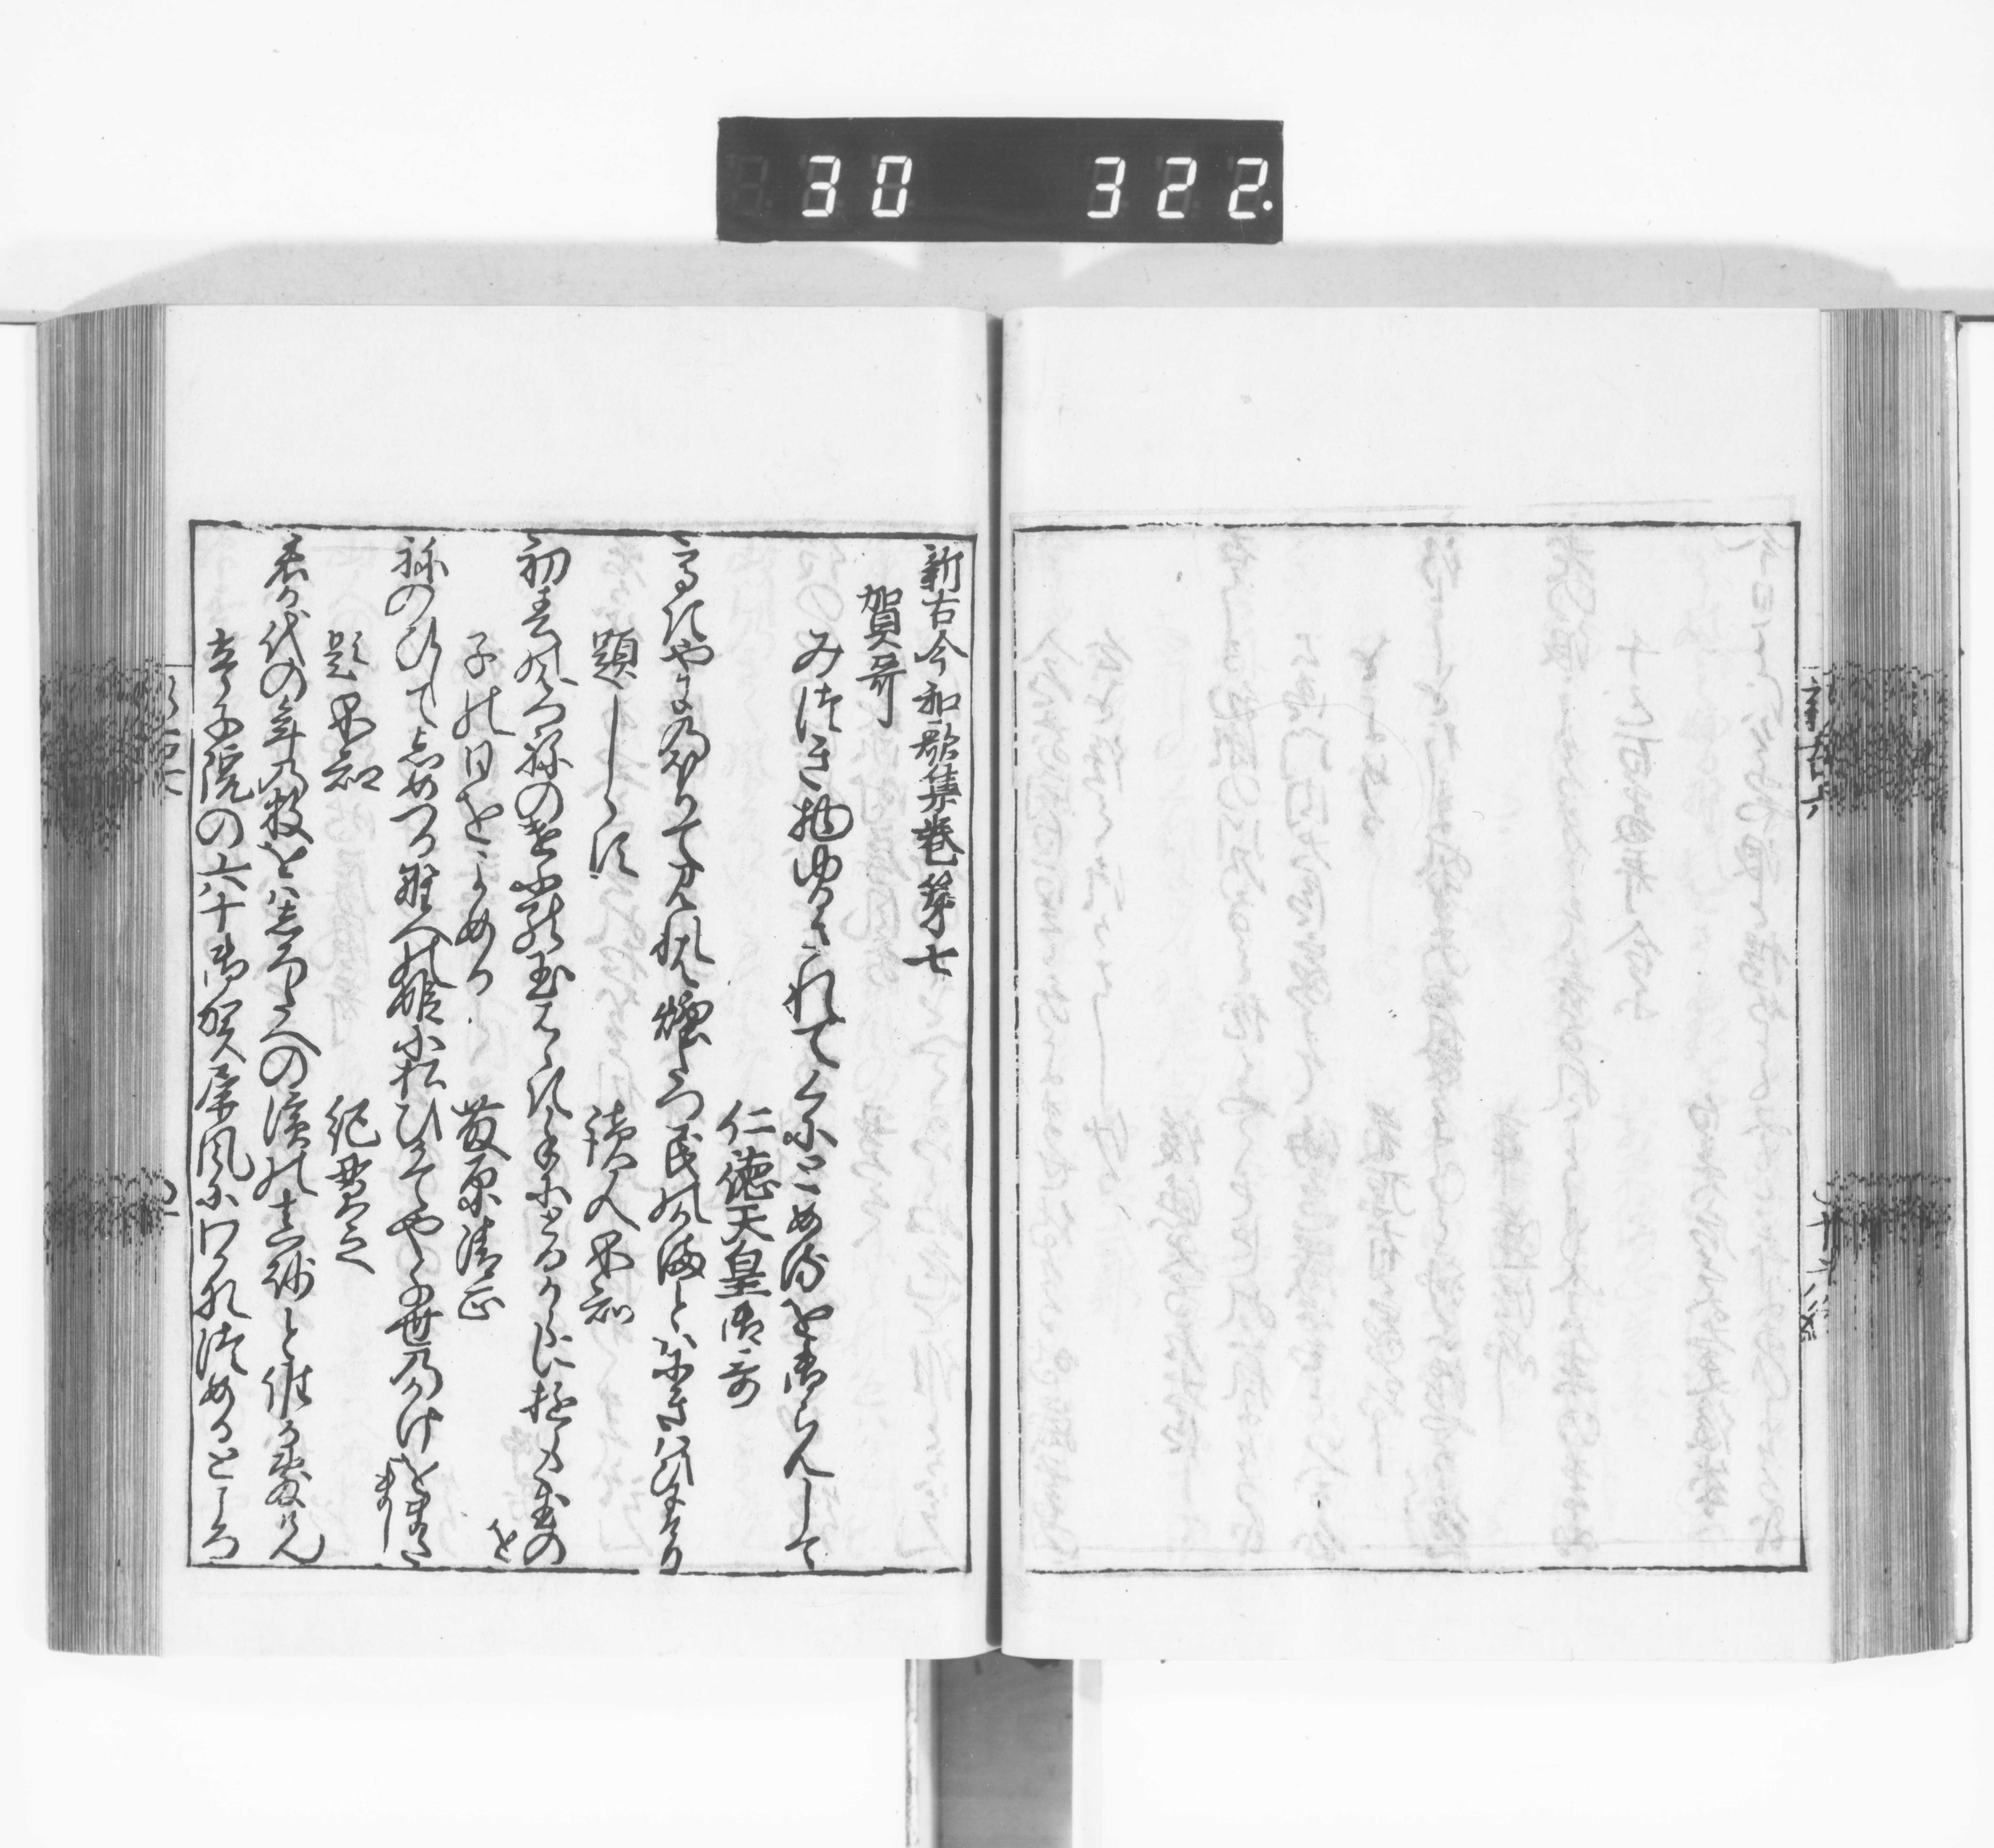 30 322.
新古今和歌集巻第七
賀哥
みつき物ゆるされてくにとめるを御らんして
仁徳天皇御哥
たかきやにのほりてみれは煙たつ民のかまとはにきはひにけり
題しらす
読人不知
初春のはつねのけふの玉はゝき手にとるからにゆらく玉の
を
子の日をよめる
藤原清正
ねのひしてしめつる野への姫小松ひかてやちよのかけをまたまし
題不知
紀貫之
君か代の年の数をはしろたへの濱のまさこと誰かしきけん
亭子院の六十御賀屏風にわかなつめるところ